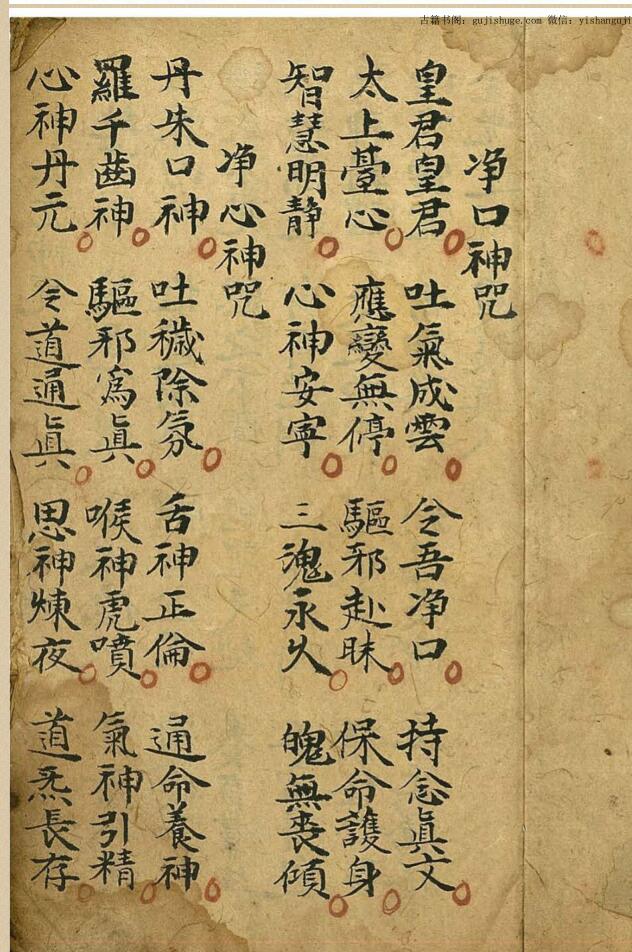 古籍书阁：gujishuge.com 微信：yishanguji
净口神咒
皇君皇君 吐氣成雲 令吾净口 持念眞文
太上臺心 應變無停 驅邪赴昧 保命護身
智慧明静 心神安寜 三魂永久 魄無喪傾
净心神咒
丹朱口神 吐穢除氛 舌神正倫 通命養神
羅千齒神 驅邪爲眞 喉神虎噴 氣神引精
心神丹元 令道通眞 思神煉夜 道炁長存